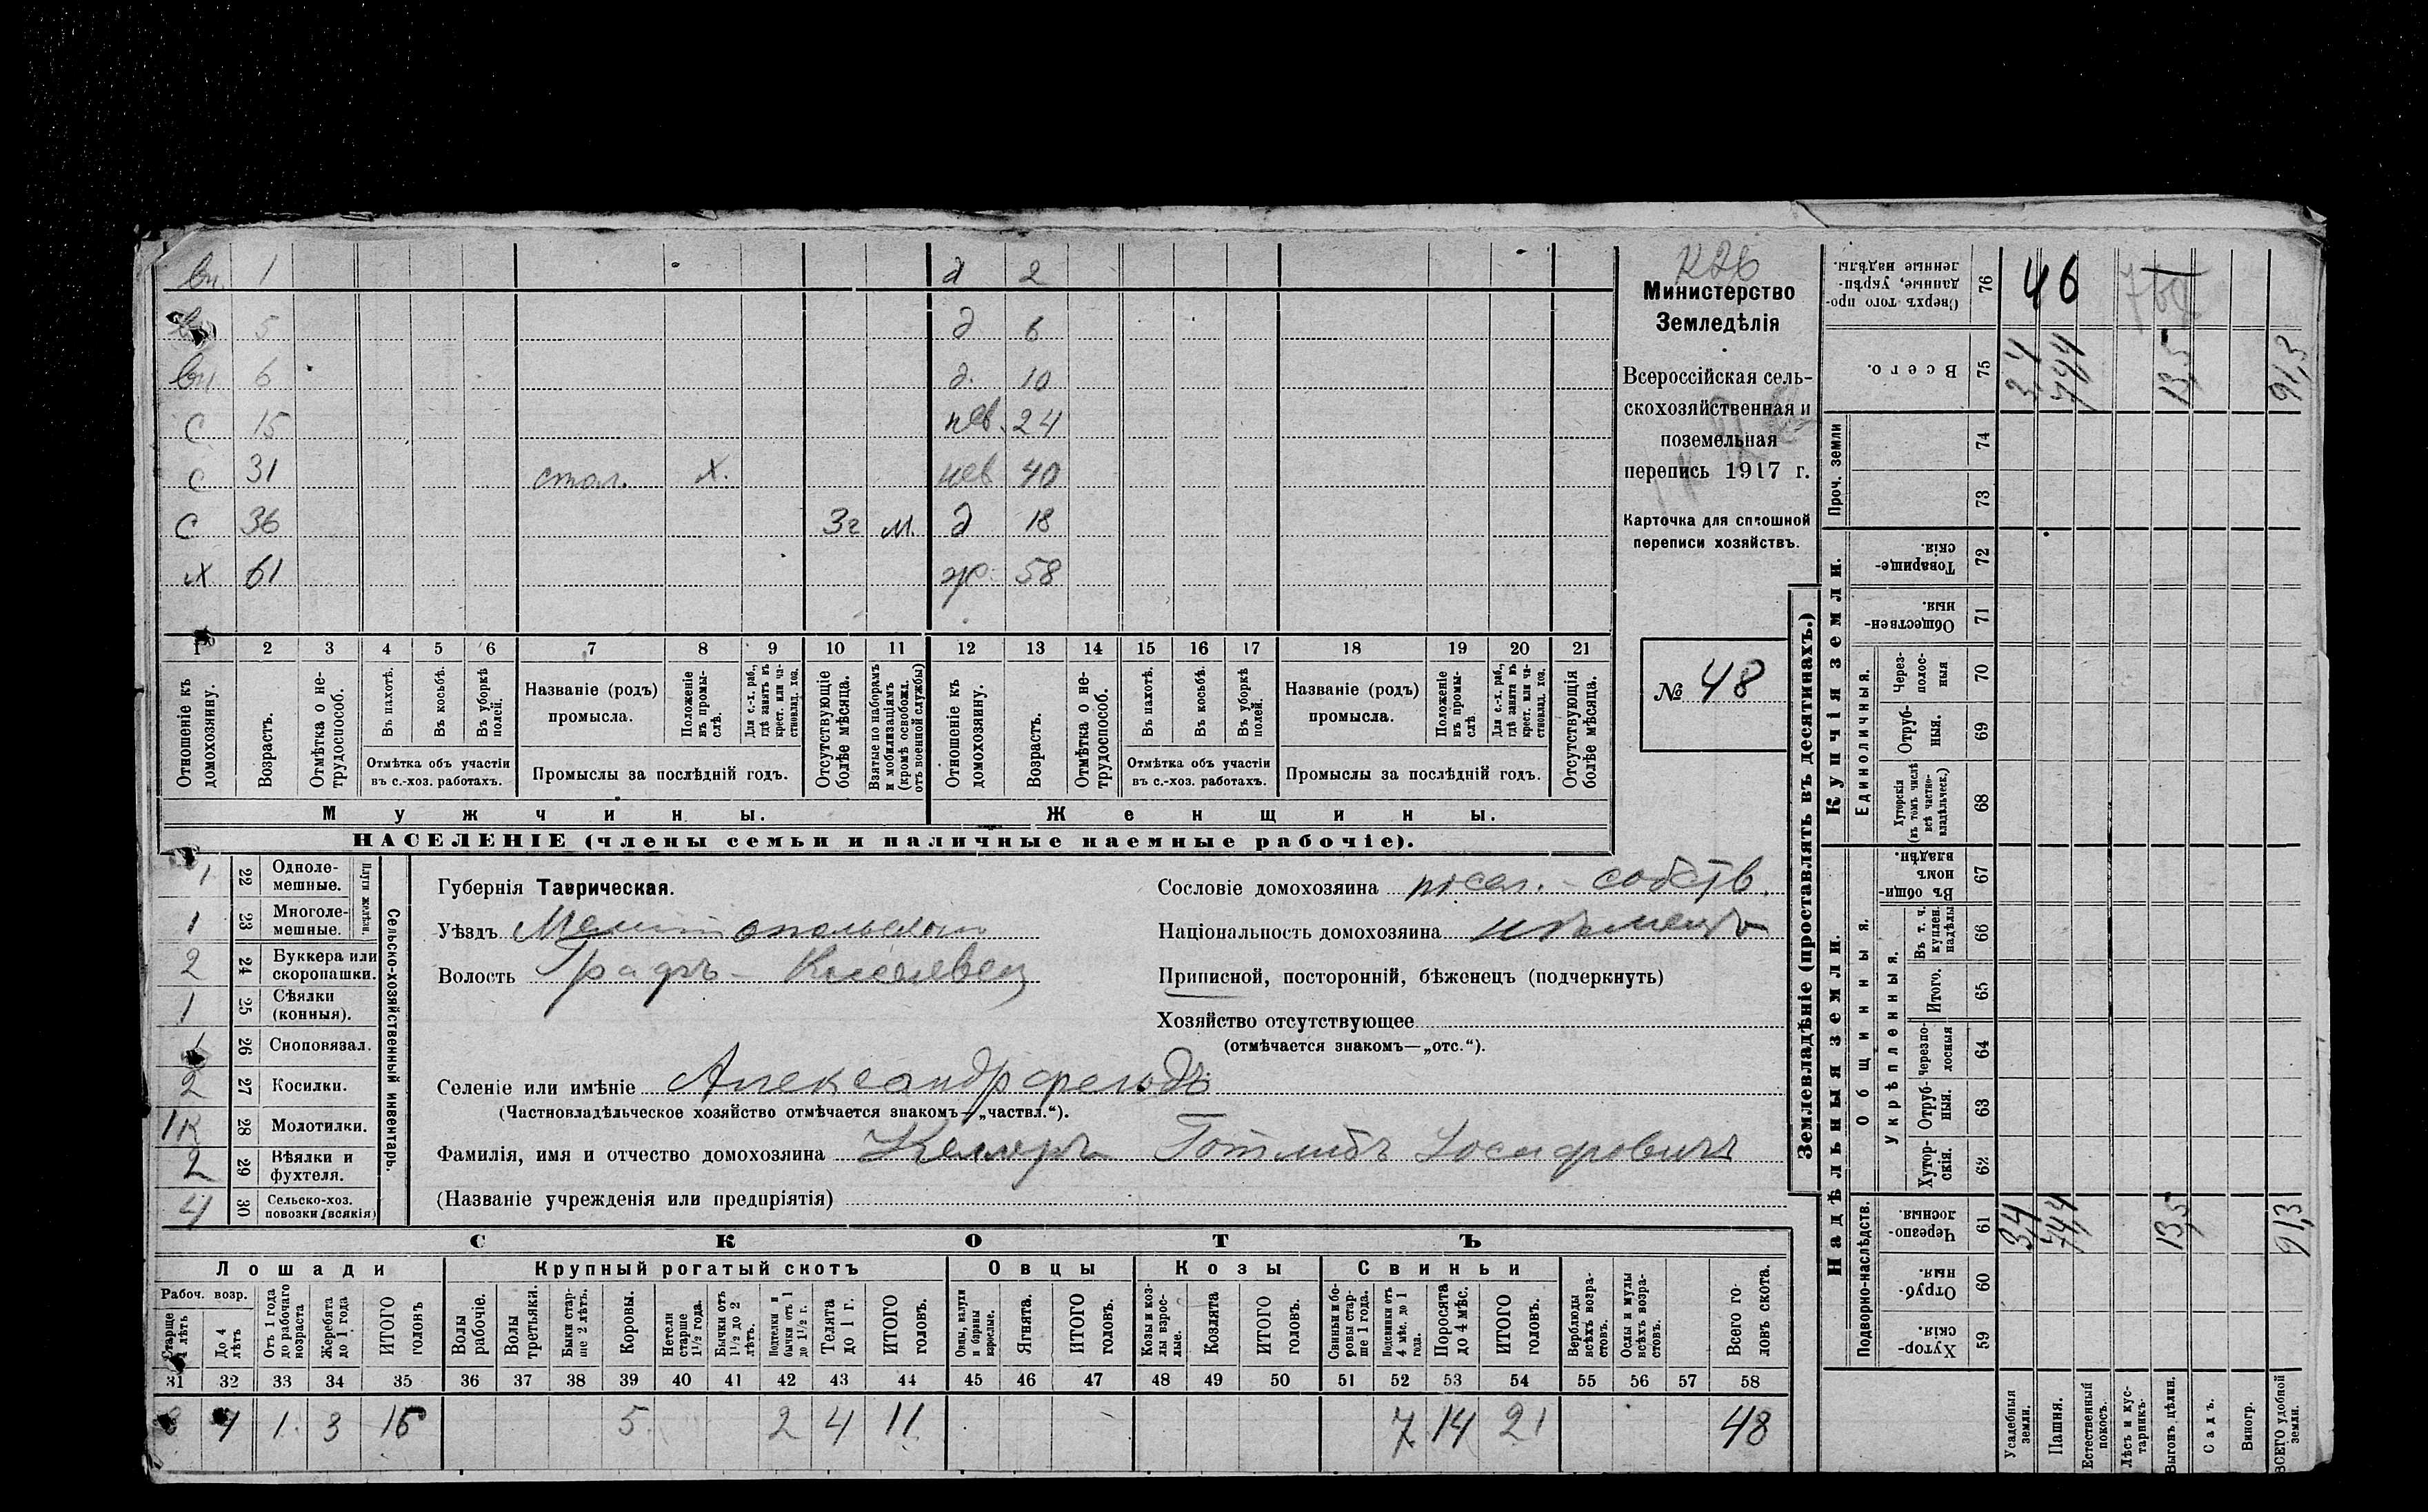 вн. 1 д 2
5 д 6
вн 6 д. 10
С 15 нев. 24
С 31 стол. х. нев 40
С 36 3г м. д 18
х 61 ж 58
1 2 3 4 5 6 7 8 9 10 11 12 13 14 15 16 17 18 19 20 21
Отношеніе къ домохозяину.
Возрастъ.
Отмѣтка о не-трудоспособ.
Въ пахотѣ.
Въ косьбѣ.
Въ уборкѣ полей.
Отмѣтка объ участіи
въ с.-хоз. работахъ.
Названіе (родъ)
промысла.
Положеніе въ промы-слѣ.
Для с.-х. раб., гдѣ занятъ въ крест. или ча-стновлад. хоз.
Промыслы за послѣдній годъ.
Отсутствующіе болѣе мѣсяца.
Взятые по наборамъ и мобилизаціямъ (кромѣ освобожд. отъ военной службы)
Отношеніе къ домохозяину.
Возрастъ.
Отмѣтка о не-трудоспособ.
Въ пахотѣ.
Въ косьбѣ.
Въ уборкѣ полей.
Отмѣтка объ участіи
въ с.-хоз. работахъ.
Названіе (родъ)
промысла.
Положеніе въ промы-слѣ.
Для с.-х. раб., гдѣ занята въ крест. или ча-стновлад. хоз.
Промыслы за послѣдній годъ.
Отсутствующія болѣе мѣсяца.
Мужчины. Женщины.
НАСЕЛЕНІЕ (члены семьи и наличные наемные рабочіе).
Министерство
Земледѣлія
Всероссійская сель-
скохозяйственная и
поземельная
перепись 1917 г.
Карточка для сплошной
переписи хозяйствъ.
№ 48
1 22 Одноле-мешные.
1 23 Многоле-мешные.
Плуги желѣзн.
2 24 Буккера или скоропашки.
1 25 Сѣялки (конныя).
1 26 Сноповязал.
2 27 Косилки.
1к 28 Молотилки.
2 29 Вѣялки и фухтеля.
4 30 Сельско-хоз. повозки (всякія)
Сельско-хозяйственный инвентарь.
Губернія Таврическая.
Уѣздъ Мелитопольскаго
Волость
Селеніе или имѣніе Александрфельдъ
(Частновладѣльческое хозяйство отмѣчается знакомъ—„частвл.“).
Фамилія, имя и отчество домохозяина Келлеръ Готлибъ Іосифовичъ
(Названіе учрежденія или предпріятія)
Сословіе домохозяина посел. - собств.
Національность домохозяина нѣмецъ
Приписной, посторонній, бѣженецъ (подчеркнуть)
Хозяйство отсутствующее
(отмѣчается знакомъ—„отс.“).
СКОТЪ
Лошади Крупный рогатый скотъ Овцы Козы Свиньи
Рабоч. возр.
Старше 4 лѣтъ
До 4 лѣтъ
Отъ 1 года до рабочаго возраста
Жеребята до 1 года
ИТОГО головъ
Волы рабочіе.
Волы третьяки.
Быки стар-ше 2 лѣтъ.
Коровы.
Нетели старше 1½ года.
Бычки отъ 1½ до 2 лѣтъ.
Подтелки и бычки отъ 1 до 1½ г.
Телята до 1 г.
ИТОГО головъ.
Овцы, валухи и бараны взрослые.
Ягнята.
ИТОГО головъ.
Козы и коз-лы взрос-лые.
Козлята
ИТОГО головъ.
Свиньи и бо-ровы стар-ше 1 года.
Подсвинки отъ 4 мѣс. до 1 года.
Поросята до 4 мѣс.
ИТОГО головъ.
Верблюды всѣхъ возра-стовъ.
Ослы и мулы всѣхъ возра-стовъ.
Всего го-ловъ скота.
31 32 33 34 35 36 37 38 39 40 41 42 43 44 45 46 47 48 49 50 51 52 53 54 55 56 57 58
8 4 1. 3 16 5. 2 4 11 7 14 21 48
Землевладѣніе (проставлять въ десятинахъ.)
Надѣльныя земли. Купчія земли. Проч. земли
Подворно-наслѣдств. Общинныя. Единоличныя.
Укрѣпленныя.
Сверхъ того про-данные, укрѣп-ленные надѣлы. 76 46
Всего. 75 3,4 74,4 13,5 91,3
74
73
Товарище-скія. 72
Обществен-ныя. 71
Через-полос-ныя 70
Отруб-ныя. 69
Хуторскія (въ томъ числѣ всѣ частно-владѣльческ.) 68
Въ общин-номъ владѣн. 67
Въ т. ч. куплен. надѣлы 66
Итого. 65
Черезпо-лосныя 64
Отруб-ныя. 63
Хутор-скія. 62
Черезпо-лосныя. 61 3,4 74,4 13,5 91,3
Отруб-ныя. 60
Хутор-скія. 59
Усадебныя земли.
Пашня.
Естественный покосъ.
Лѣсъ и кус-тарникъ.
Выгонъ, цѣлин.
Садъ.
Виногр.
ВСЕГО удобной земли.